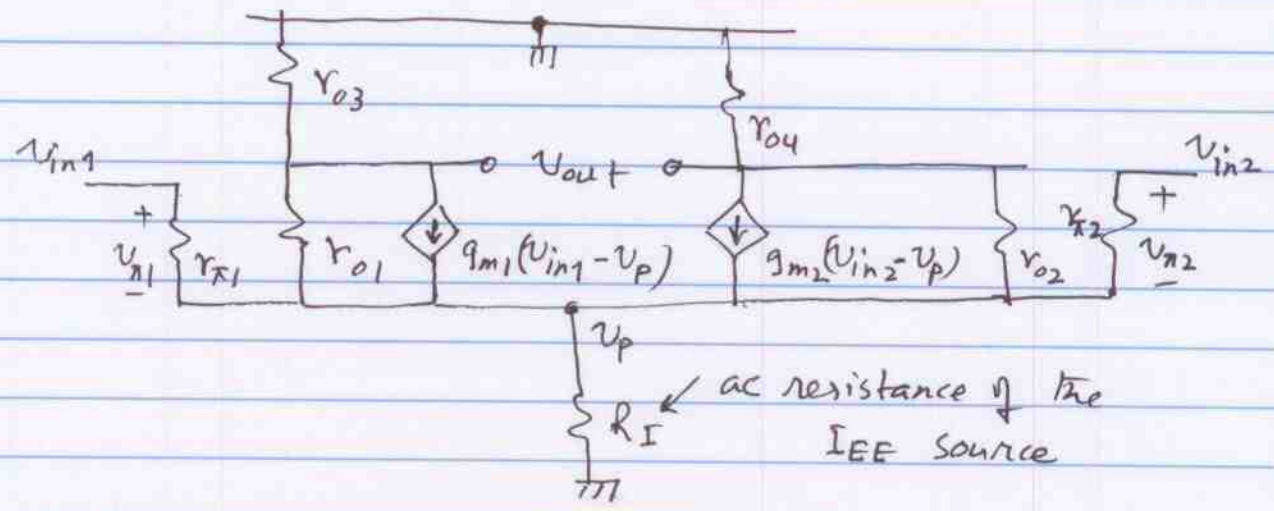 r_o3
r_o4
v_in1
v_out
v_in2
+
v_π1
-
r_π1
r_o1
g_m1(v_in1-v_p)
g_m2(v_in2-v_p)
r_o2
r_π2
+
v_π2
-
v_p
R_I
ac resistance of the
I_EE source